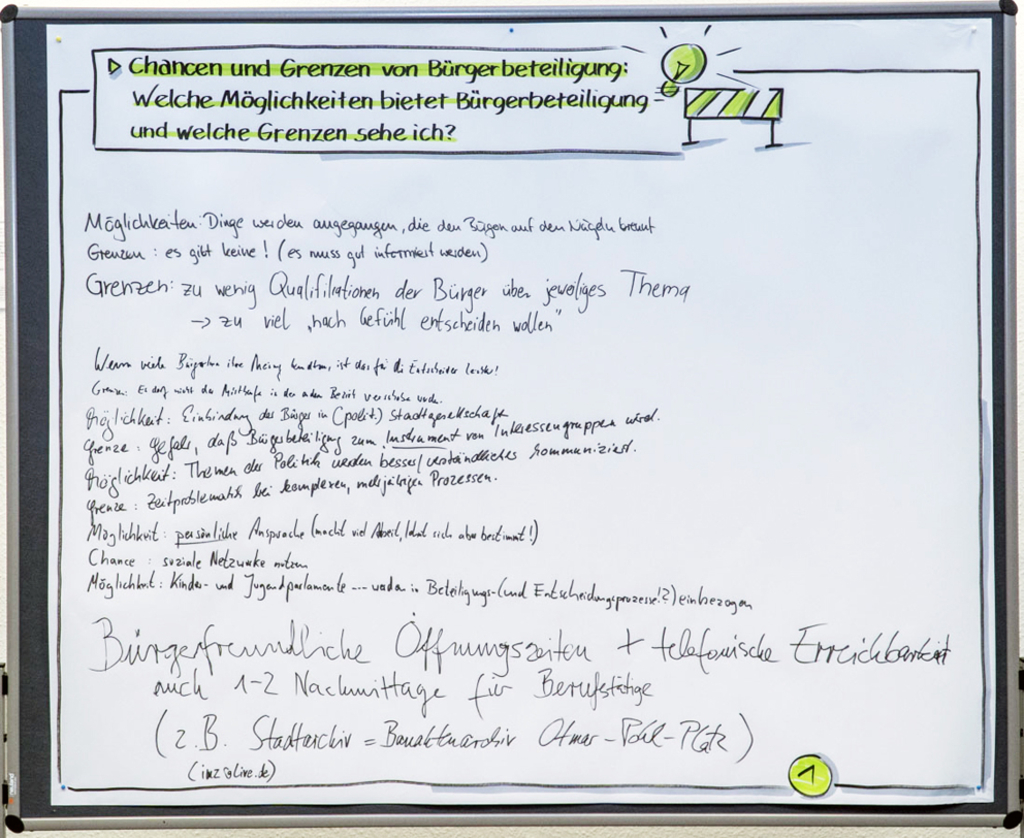 ▷ Chancen und Grenzen von Bürgerbeteiligung:
Welche Möglichkeiten bietet Bürgerbeteiligung
und welche Grenzen sehe ich?
Möglichkeiten: Dinge werden angegangen, die den Bügen auf den Nägeln brennt
Grenzen: es gibt keine! (es muss gut informiert werden)
Grenzen: zu wenig Qualifikationen der Bürger über jeweiliges Thema
→ zu viel „nach Gefühl entscheiden wollen"
Wenn viele ihre Meinung, ist das für die Entscheider leichter!
Grenzen: Es darf nicht der in den anderen Bezirk verschoben werden.
Möglichkeit: Einbindung der Bürger in (polit.) Stadtgesellschaft
Grenze: Gefahr, daß Bürgerbeteiligung zum Instrument von Interessengruppen wird.
Möglichkeit: Themen der Politik werden besser/verständlicher kommuniziert.
Grenze: Zeitproblematik bei komplexen, mehrjährigen Prozessen.
Möglichkeit: persönliche Ansprache (macht viel Arbeit, lohnt sich aber bestimmt!)
Chance: soziale Netzwerke nutzen
Möglichkeit: Kinder- und Jugendparlamente --- werden in Beteiligungs-(und Entscheidungsprozesse!?) einbezogen
Bürgerfreundliche Öffnungszeiten + telefonische Erreichbarkeit
auch 1-2 Nachmittage für Berufstätige
(z.B. Stadtarchiv = Bauaktenarchiv Otmar-Pohl-Platz)
(imz@live.de)
1